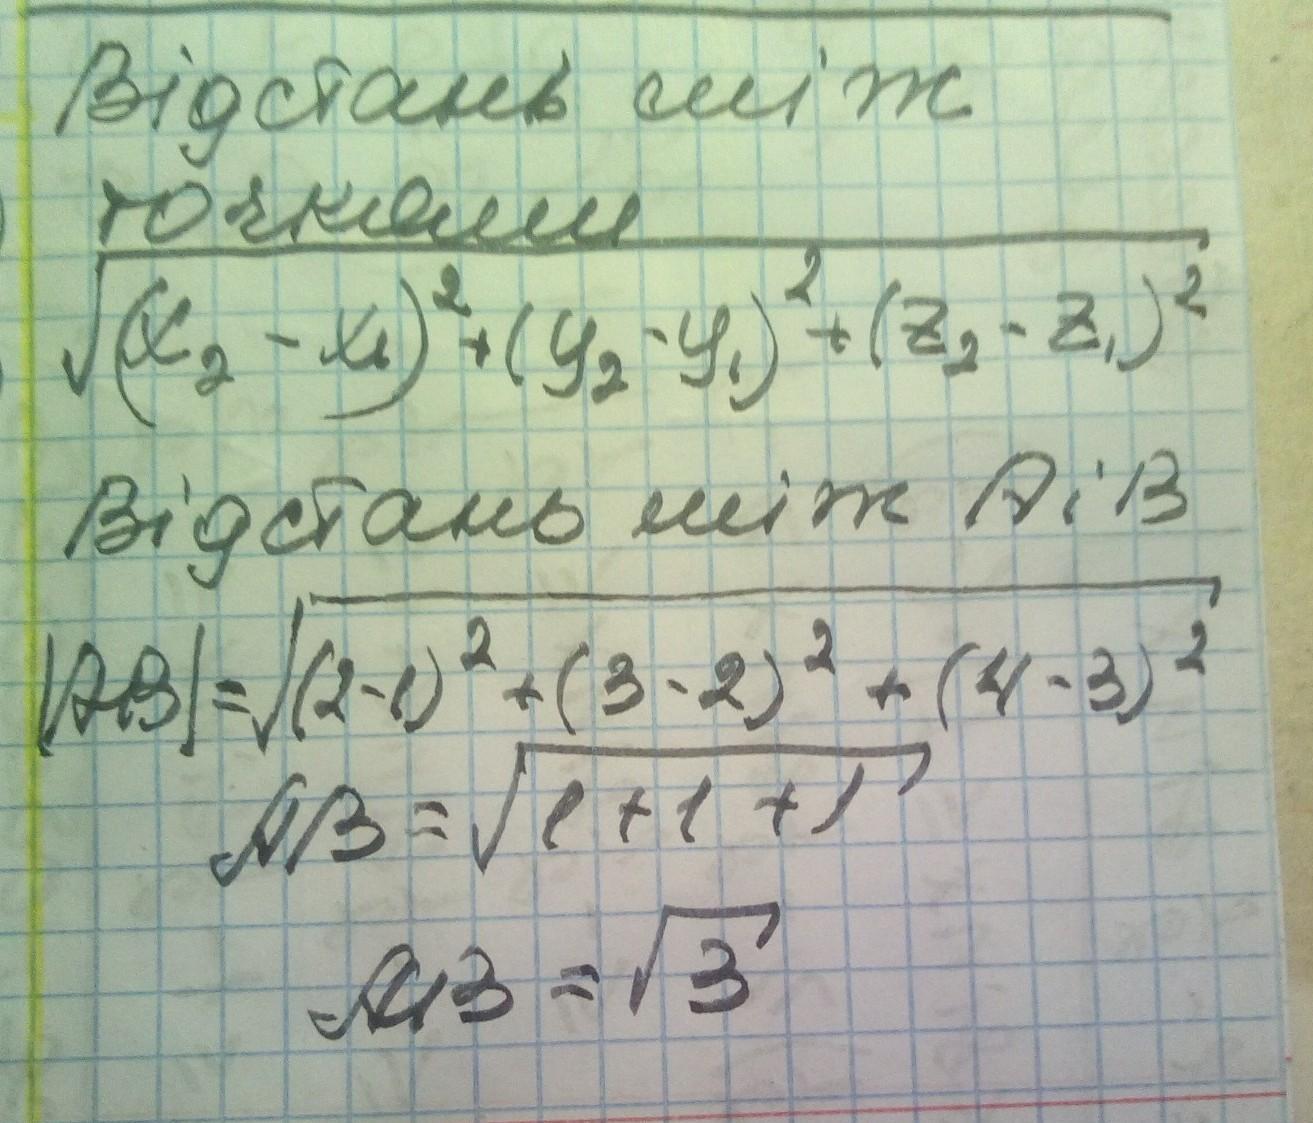 Відстань між
точками
√(x₂ - x₁)² + (y₂ - y₁)² + (z₂ - z₁)²
Відстань між A і B
|AB| = √(2-1)² + (3-2)² + (4-3)²
AB = √1+1+1
AB = √3